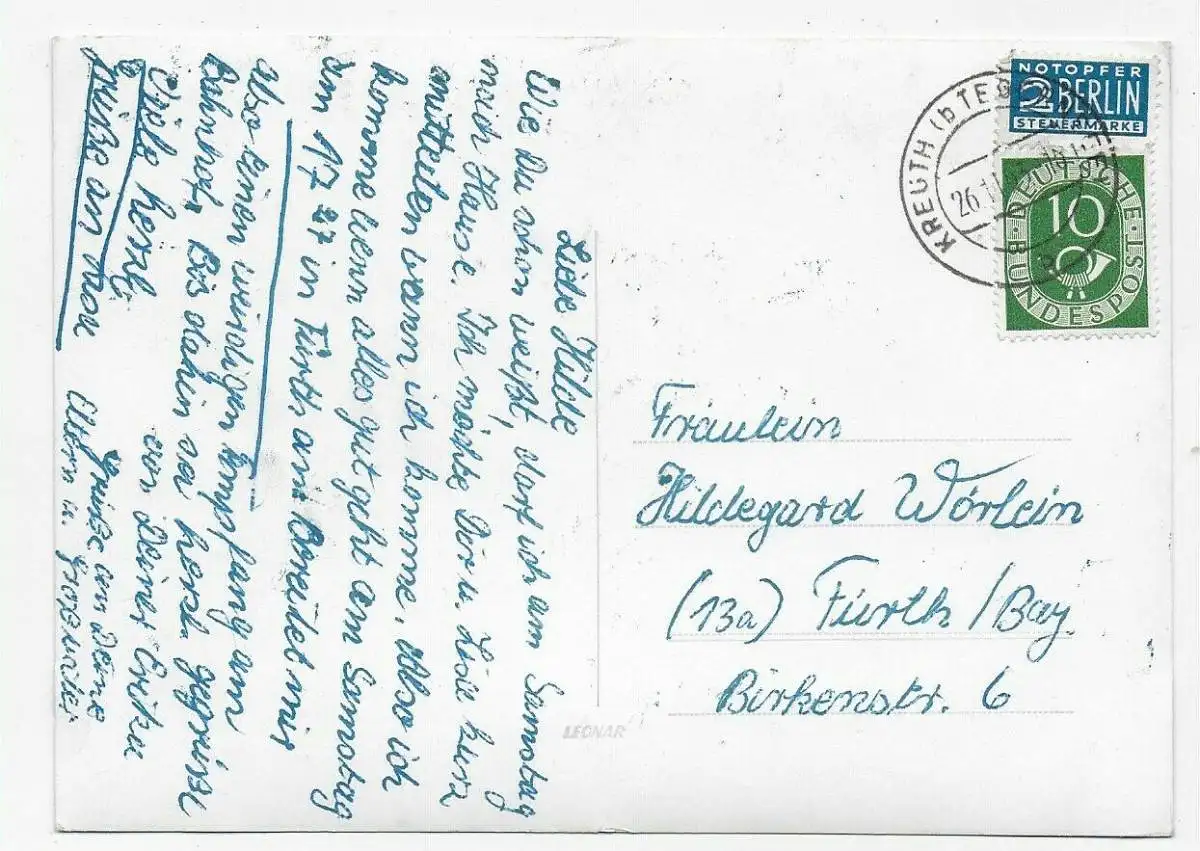 Liebe Hilde
Wie Du schon weißt, darf ich am Samstag
nach Hause. Ich möchte Dir u. Lisl kurz
mitteilen wann ich komme. Also ich
komme wenn alles gut geht am Samstag
um 17 27 in Fürth an. Bereitet mir
also einen würdigen Empfang am
Bahnhof. Bis dahin sei herzl. gegrüsst
von Deiner Erika
Viele herzl.
Grüße an das
Grüße an Deine
Eltern u.
NOTOPFER
2 BERLIN
STEUERMARKE
KREUTH (b TEGERNSEE)
26.11.
10
DEUTSCHE BUNDESPOST
Fräulein
Hildegard Wörlein
(13a) Fürth/Bay.
Birkenstr. 6
LEONAR